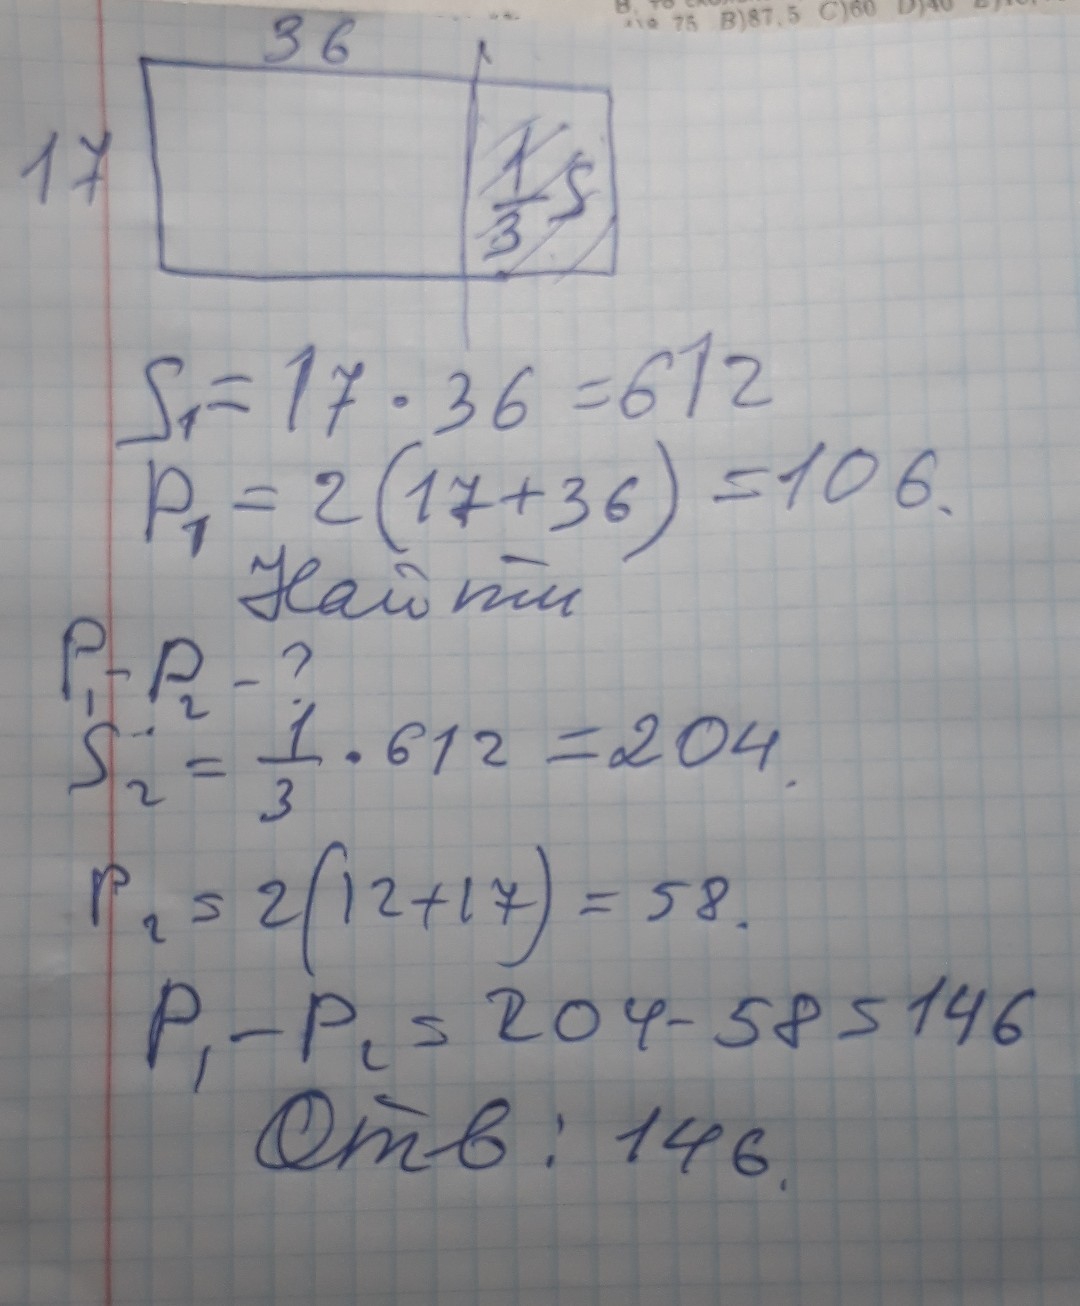 75 B)87,5 C)60 D)40
36
17
1/3 S
S₁ = 17 · 36 = 612
P₁ = 2(17+36) = 106.
Найти
P₁ - P₂ - ?
S₂ = 1/3 · 612 = 204.
P₂ = 2(12+17) = 58.
P₁ - P₂ = 204 - 58 = 146
Отв: 146.